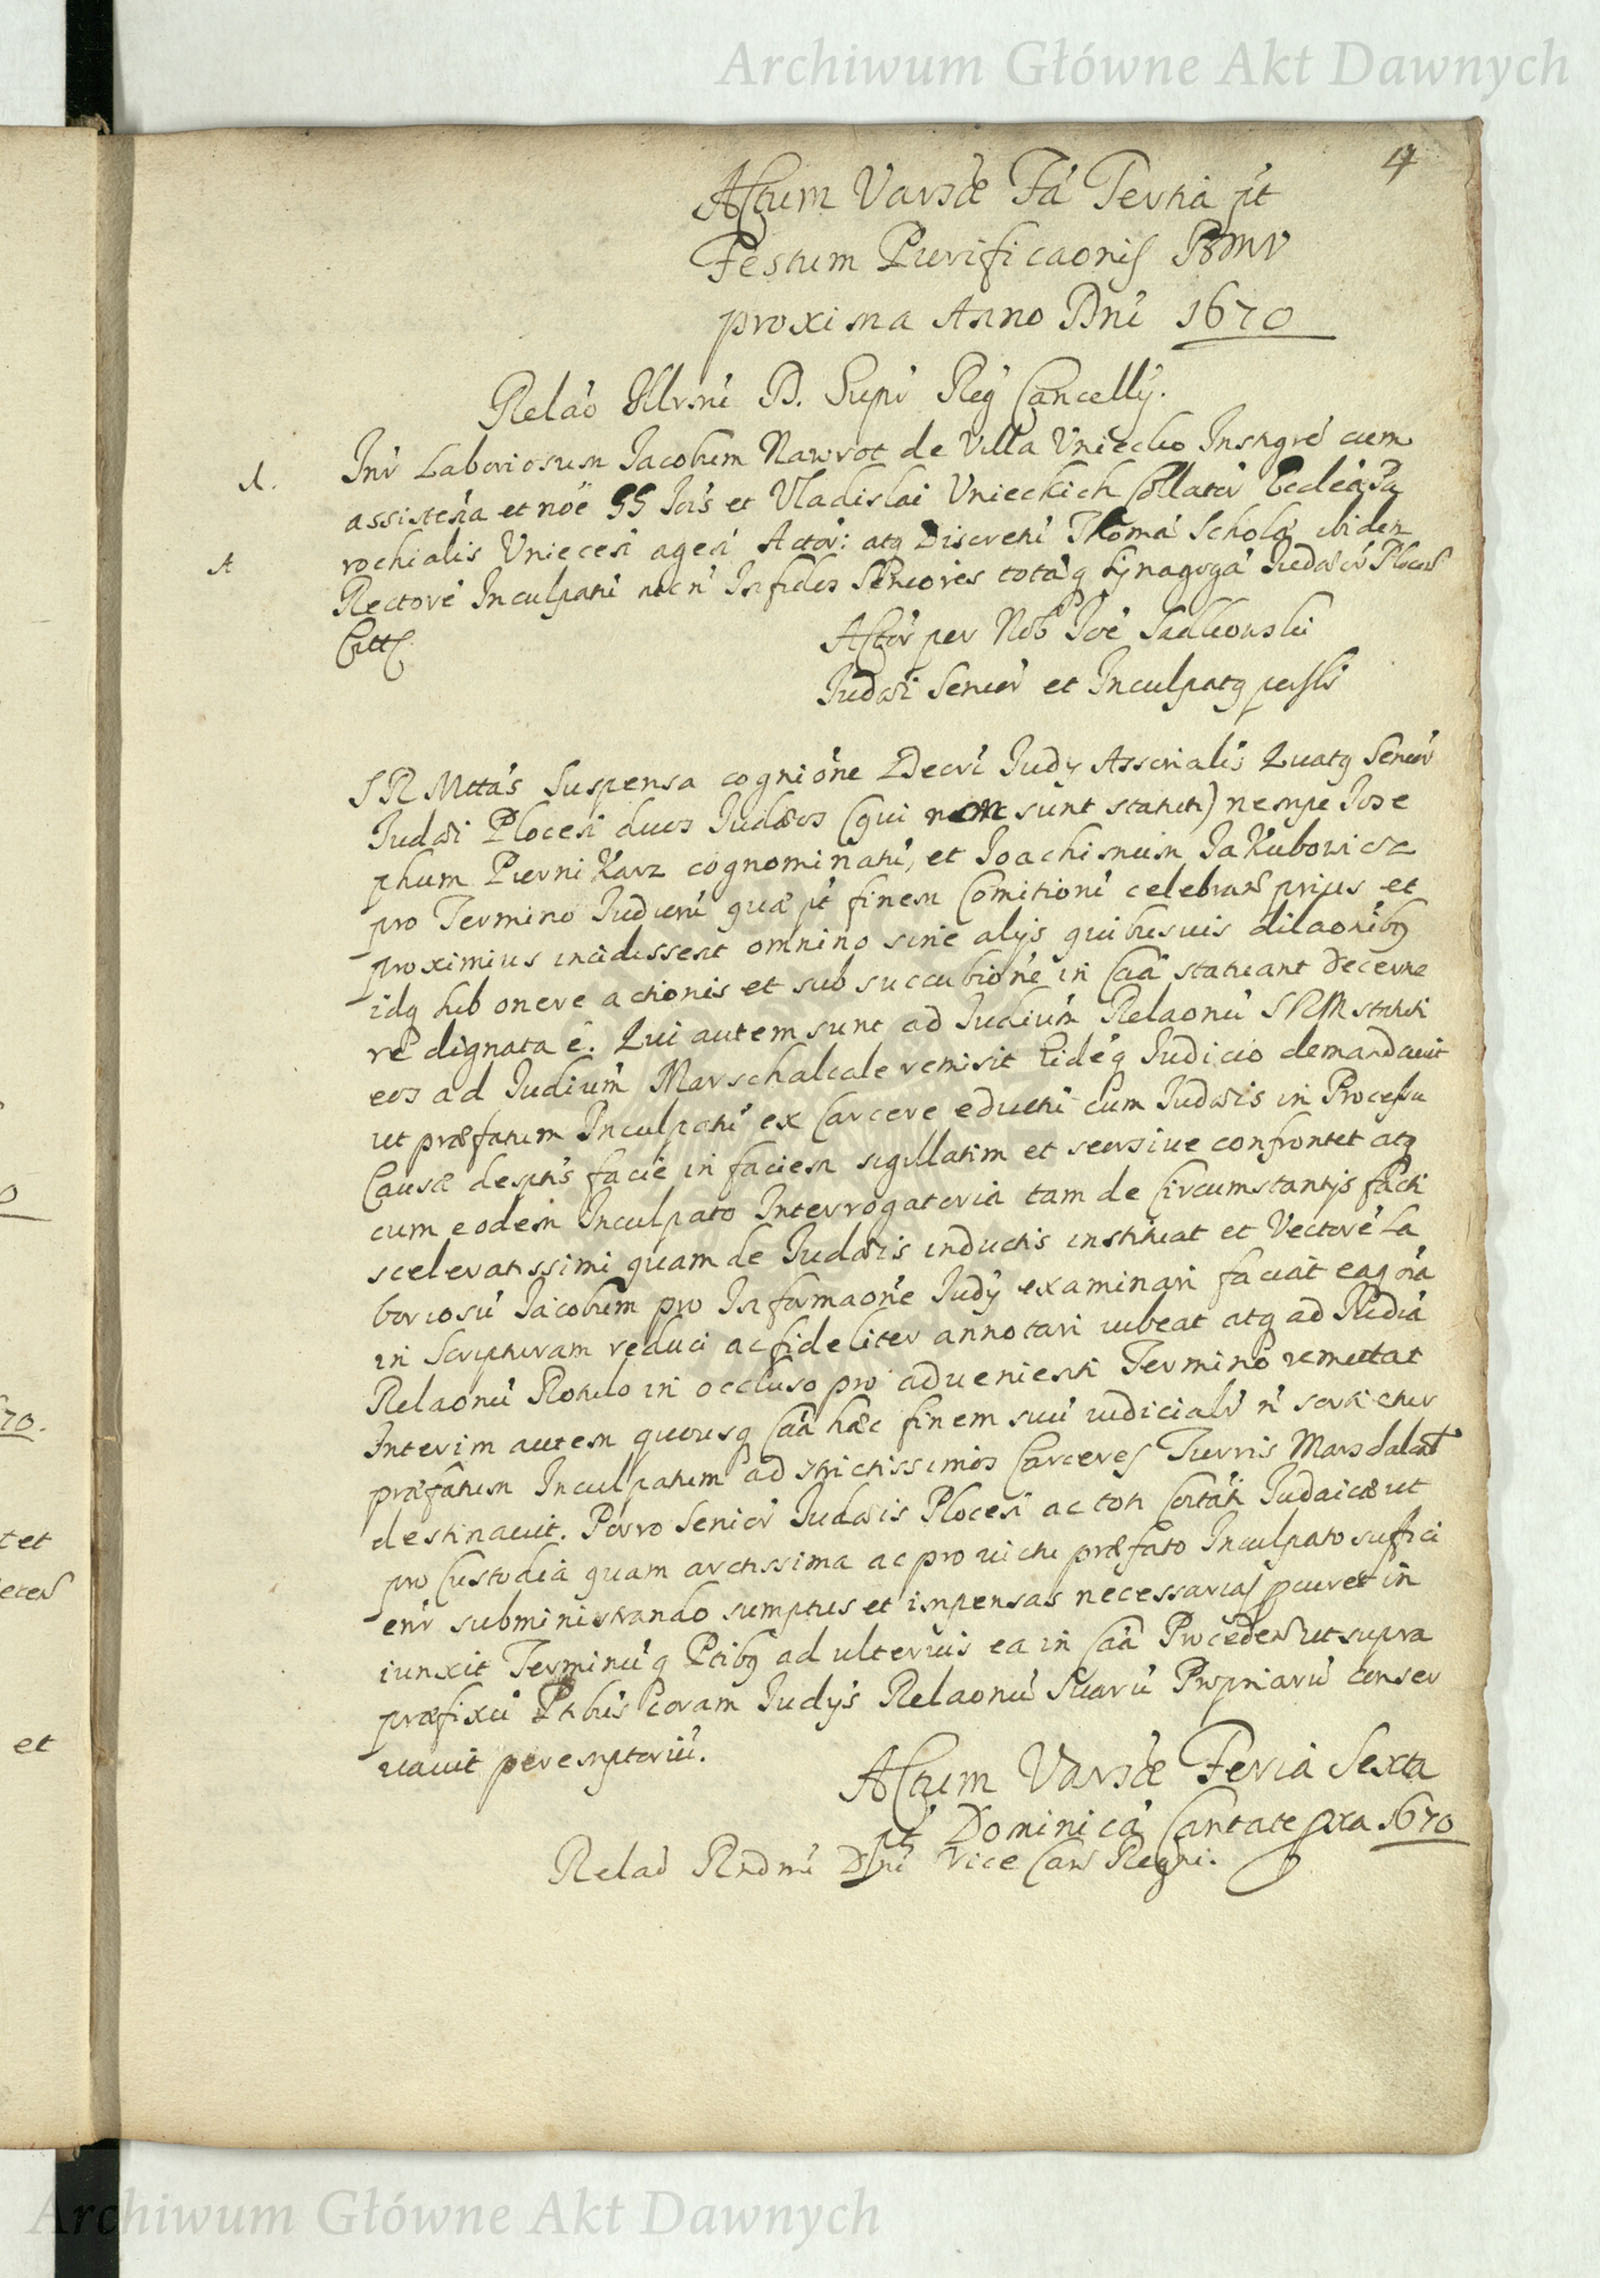 Archiwum Główne Akt Dawnych
17
Actum Varsae Fa Tertia pt
Festum Purificaonis BMV
proxima Anno Dni 1670
Relao Illrmi D. Supr Reg Cancellÿ.
A. Inr Laboriosum Jacobum Nawrot de Villa Uniecko Instigre cum
assistena et noe GG Jois et Vladislai Unieckich Collator Eccleia Pa
A rochialis Uniecen agen Actor: atq Discretu Thoma Schola ibidem
Rectore Inculpatu nec n Infides Seniores totaq Synagoga Judaeor Plocen
Citt
Actor per Nob Joe Sadkowski
Judaei Senior et Inculpatq psli
S R Mttas Suspensa cognione Decri Judÿ Assorialis Quatq Senior
Judaei Plocen duos Judaeos (qui non sunt statuti) nempe Jose
phum Piernikarz cognominatu, et Joachimum Jakubowicz
pro Termino Judioru quae pt finem Comitioru celebran prius et
proximius incidissent omnino sine alÿs quibusuis dilaonibq
idq sub onere actionis et sub succubione in Caa statuant decerne
re dignata e. Qui autem sunt ad Judium Relaonu SRM statuti
eos ad Judium Marschalcale remisit Eideq Judicio demandauit
ut praefatum Inculpatu ex Carcere eductu cum Judaeis in Processu
Causae desptis facie in faciem sigillatim et seorsiue confrontet atq
cum eodem Inculpato Interrogatoria tam de Circumstantÿs facti
sceleratissimi quam de Judaeis inductis instituat et Vectore La
boriosu Jacobum pro Informaone Judÿ examinari faciat eaq oia
in Scripturam reduci ac fideliter annotari iubeat atq ad Judia
Relaonu Rotulo in occluso pro aduenienti Termino remittat
Interim autem quousq Caa haec finem suu iudicialr n sortietur
praefatum Inculpatum ad strictissimos Carceres Turris Marschalcat
destinauit. Porro Senior Judaeis Plocen ac toti Cortati Judaicae ut
pro Custodia quam arctissima ac pro uictu praefato Inculpato suffici
enr subministrando sumptus et impensas necessarias pcuret in
iunxit Terminuq Ptibq ad ulterius ea in Caa Proceden ut supra
praefixu Ptibus coram Judÿs Relaonu Suaru Propriaru conser
uauit peremptoriu.
Actum Varsae Feria Sexta
pt Dominica Cantate pxa 1670
Relao Rndmi Dni Vice Can Regni.
70.
t et
et
Archiwum Główne Akt Dawnych